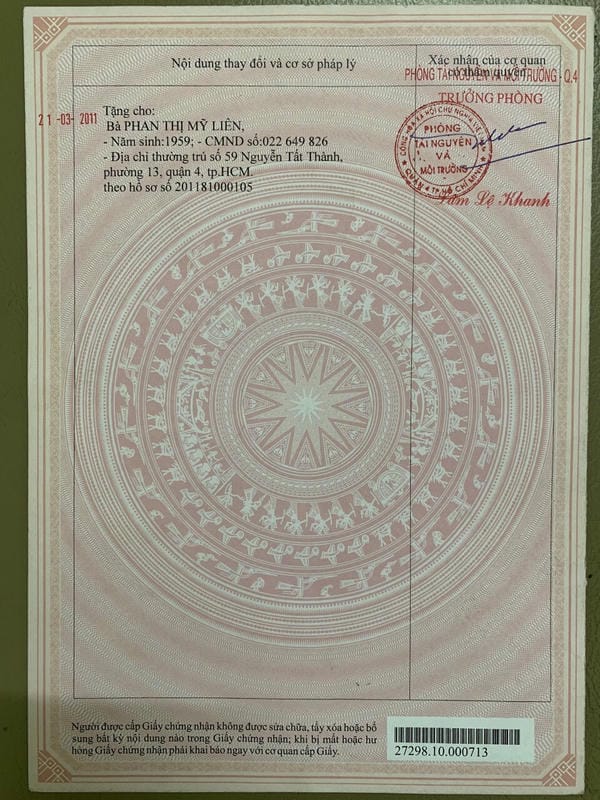 Nội dung thay đổi và cơ sở pháp lý
Xác nhận của cơ quan
có thẩm quyền
PHÒNG TÀI NGUYÊN VÀ MÔI TRƯỜNG - Q.4
TRƯỞNG PHÒNG
21 -03- 2011
Tặng cho:
Bà PHAN THỊ MỸ LIÊN,
- Năm sinh:1959; - CMND số:022 649 826
- Địa chỉ thường trú số 59 Nguyễn Tất Thành,
phường 13, quận 4, tp.HCM.
theo hồ sơ số 201181000105
CỘNG HÒA XÃ HỘI CHỦ NGHĨA VIỆT NAM
PHÒNG
TÀI NGUYÊN
VÀ
MÔI TRƯỜNG
QUẬN 4 TP. HỒ CHÍ MINH
Lê Khanh
Người được cấp Giấy chứng nhận không được sửa chữa, tẩy xóa hoặc bổ
sung bất kỳ nội dung nào trong Giấy chứng nhận; khi bị mất hoặc hư
hỏng Giấy chứng nhận phải khai báo ngay với cơ quan cấp Giấy.
27298.10.000713